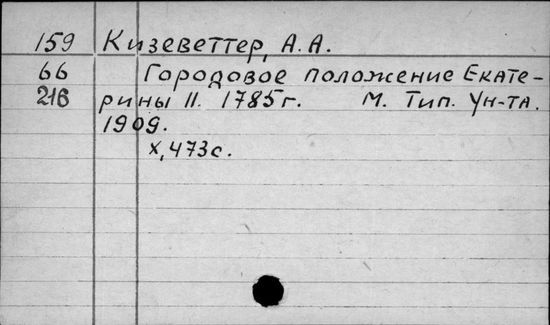 159 Кизеветтер, А. А.
66 Городовое положение Екате-
216 рины II. 1785г. М. Тип. Ун-та.
1909.
X, 473с.